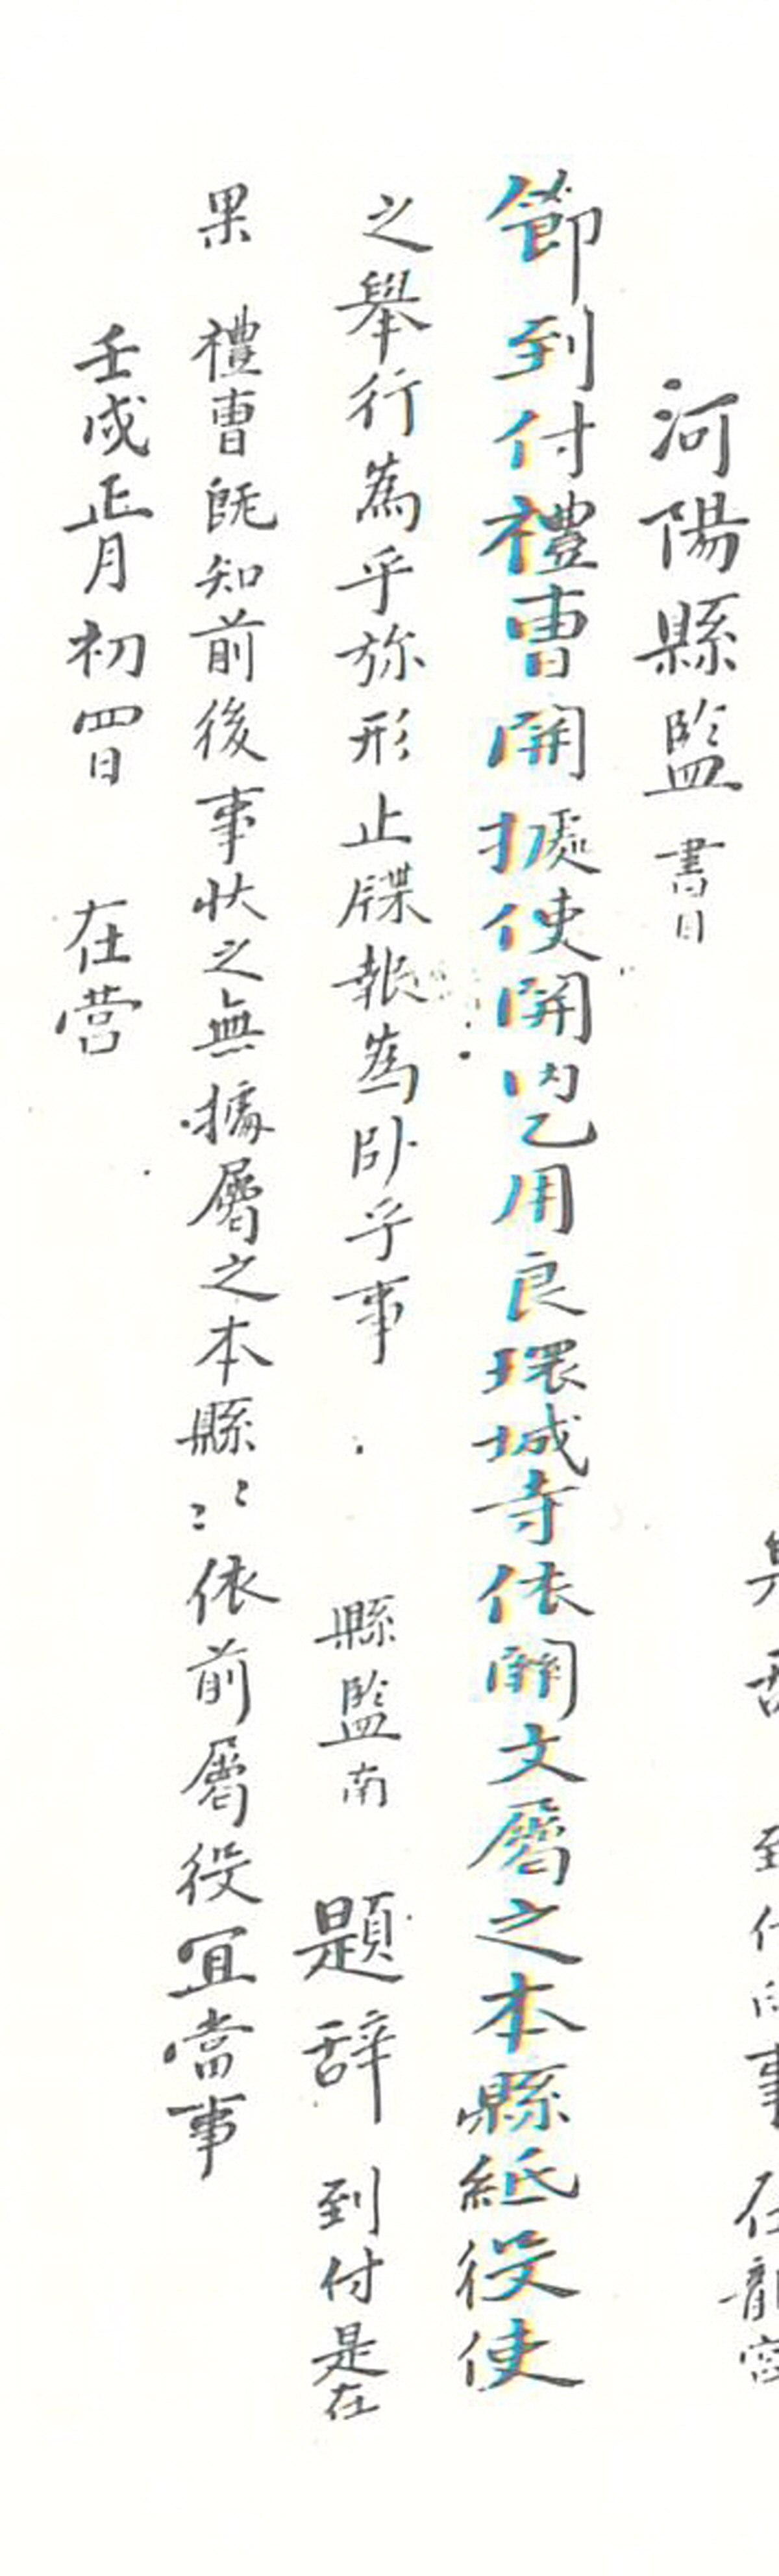 河陽縣監 書目
節到付禮曺關據使關內乙用良環城寺依關文屬之本縣紙役使
之舉行為乎旀形止牒報為卧乎事 縣監南 題辞 到付是在
果 禮曺既知前後事状之無據屬之本縣〻〻依前屬役冝當事
壬戌正月初四日 在營